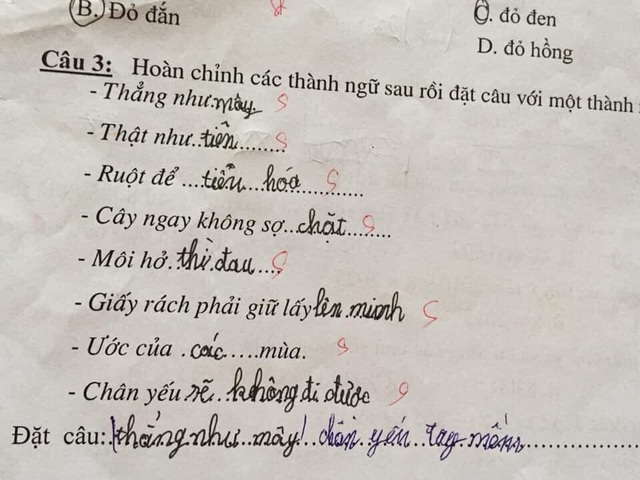 B. Đỏ đắn
C. đỏ đen
D. đỏ hồng
Câu 3: Hoàn chỉnh các thành ngữ sau rồi đặt câu với một thành
- Thẳng như mày
- Thật như tiền
- Ruột để ...tiểu hóa
- Cây ngay không sợ...chặt
- Môi hở. thì đau
- Giấy rách phải giữ lấy lên mình
- Ước của . các .....mùa.
- Chân yếu sẽ không đi được
Đặt câu: thẳng như mày! chân yếu tay mềm